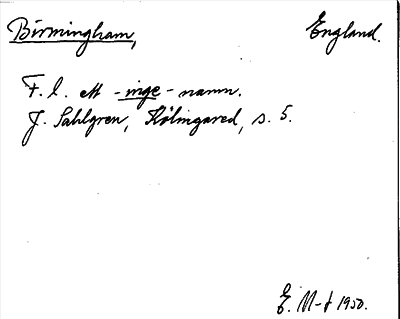 Birmingham, England.
F. l. ett -inge- namn.
J. Sahlgren, Hölmgared, s. 5.
E. M-t 1950.